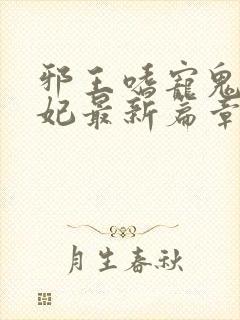 邪王嗜宠鬼
妃最新篇章
月生春秋